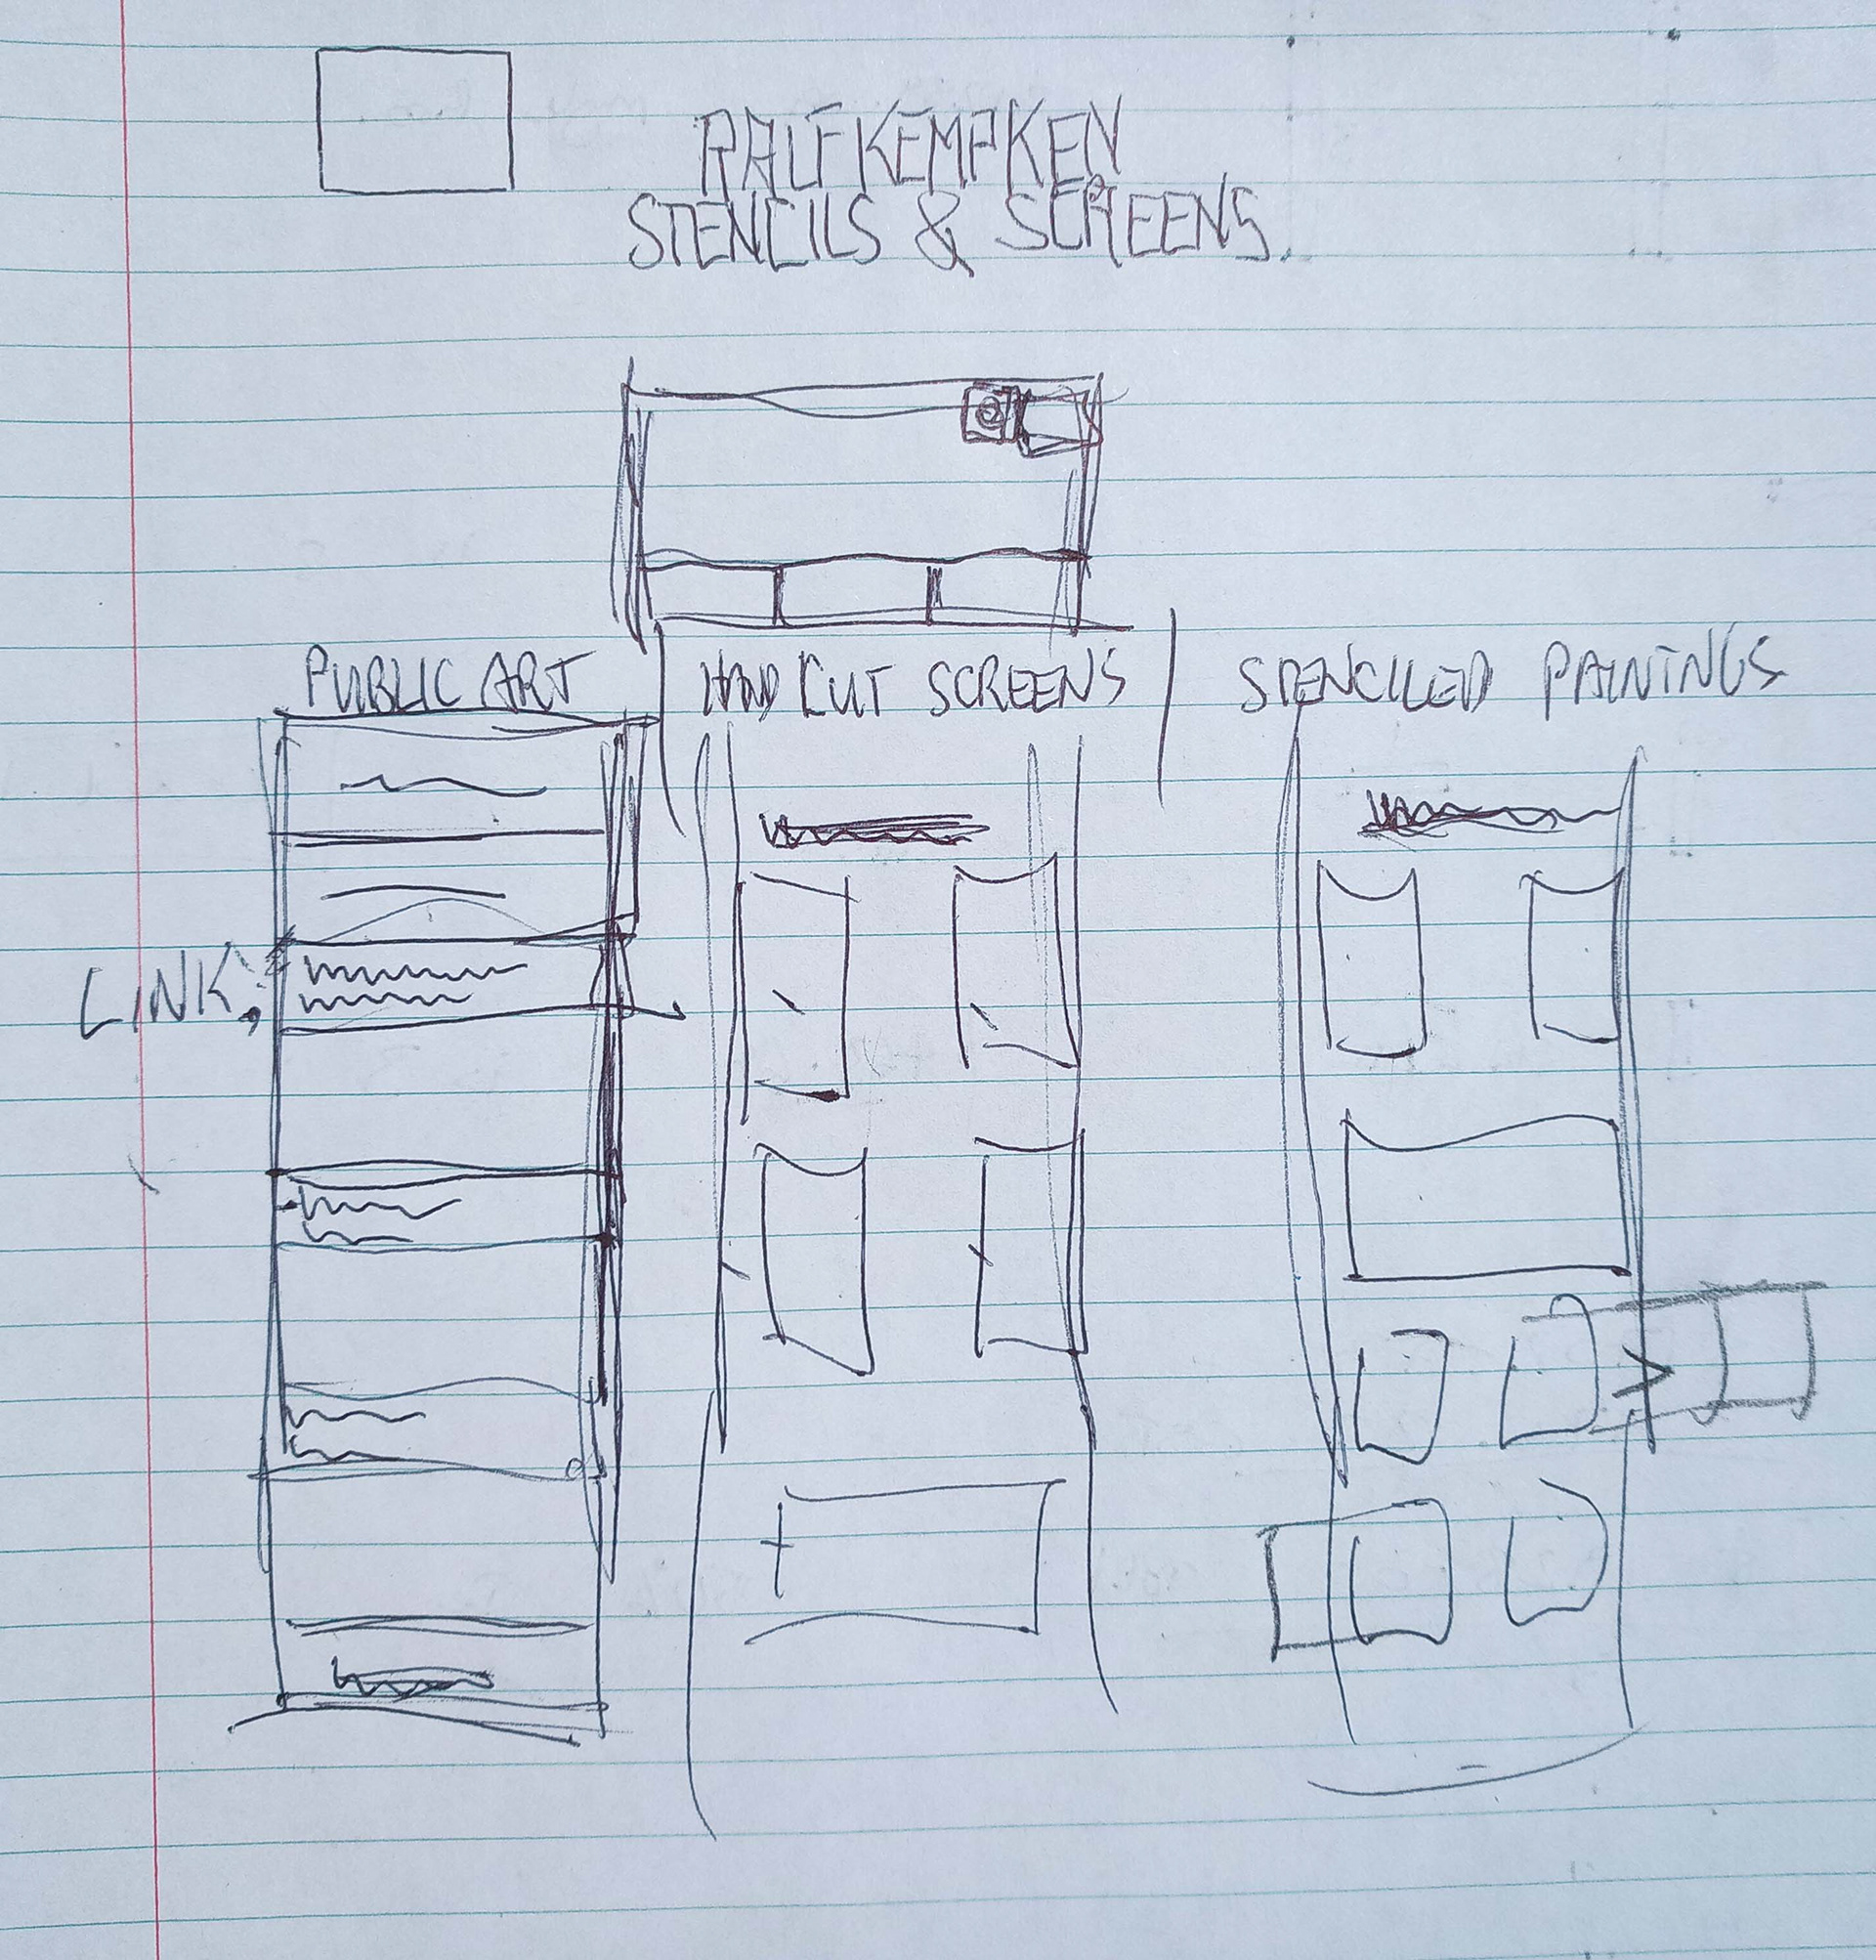 RALF KEMPKEN
STENCILS & SCREENS.
PUBLIC ART
HAND CUT SCREENS
STENCILED PAINTINGS
LINK;